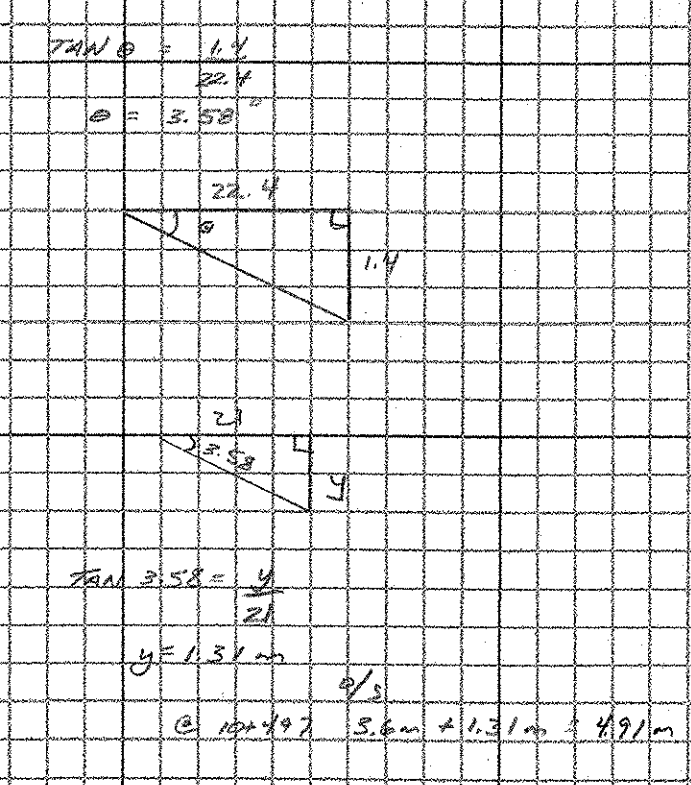 TAN θ = 1.4
22.4
θ = 3.58°
22.4
θ
1.4
21
3.58
y
TAN 3.58 = y
21
y = 1.31 m
o/s
@ 10+497 3.6m + 1.31m = 4.91m